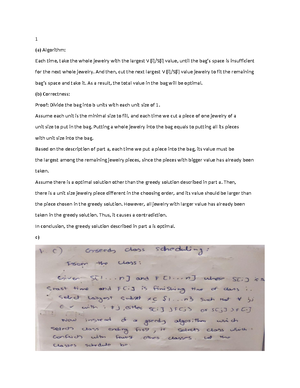 1
(a) Algorithm:
Each time, take the whole jewelry with the largest V[i]/S[i] value, until the bag's space is insufficient
for the next whole jewelry. And then, cut the next largest V[i]/S[i] value jewelry to fit the remaining
bag's space and take it. As a result, the total value in the bag will be optimal.
(b) Correctness:
Proof: Divide the bag into b units with each unit size of 1.
Assume each unit is the minimal size to fill, and each time we cut a piece of one jewelry of a
unit size to put in the bag. Putting a whole jewelry into the bag equals to putting all its pieces
with unit size into the bag.
Based on the description of part a, each time we put a piece into the bag, its value must be
the largest among the remaining jewelry pieces, since the pieces with bigger value has already been
taken.
Assume there is a optimal solution other than the greedy solution described in part a. Then,
there is a unit size jewelry piece different in the choosing order, and its value should be larger than
the piece chosen in the greedy solution. However, all jewelry with larger value has already been
taken in the greedy solution. Thus, it causes a contradiction.
In conclusion, the greedy solution described in part a is optimal.
c)
1. C) Greedy class scheduling:
From the class:
Given S[1...n] and F[1...n] where S[i]
time and F[i] is finishing time of class i.
Select largest subset
now instead of a greedy algorithm which
selects class ending first, it selects class which
conflicts with fewest other classes
classes schedule